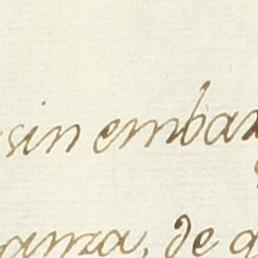 sin embar
anza, de g